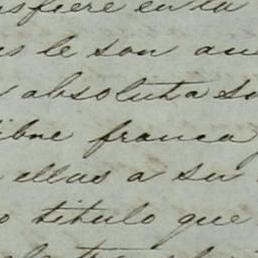 sfiere en la
s le son au
absoluta su
ibre franca
ellas a su
o titulo que